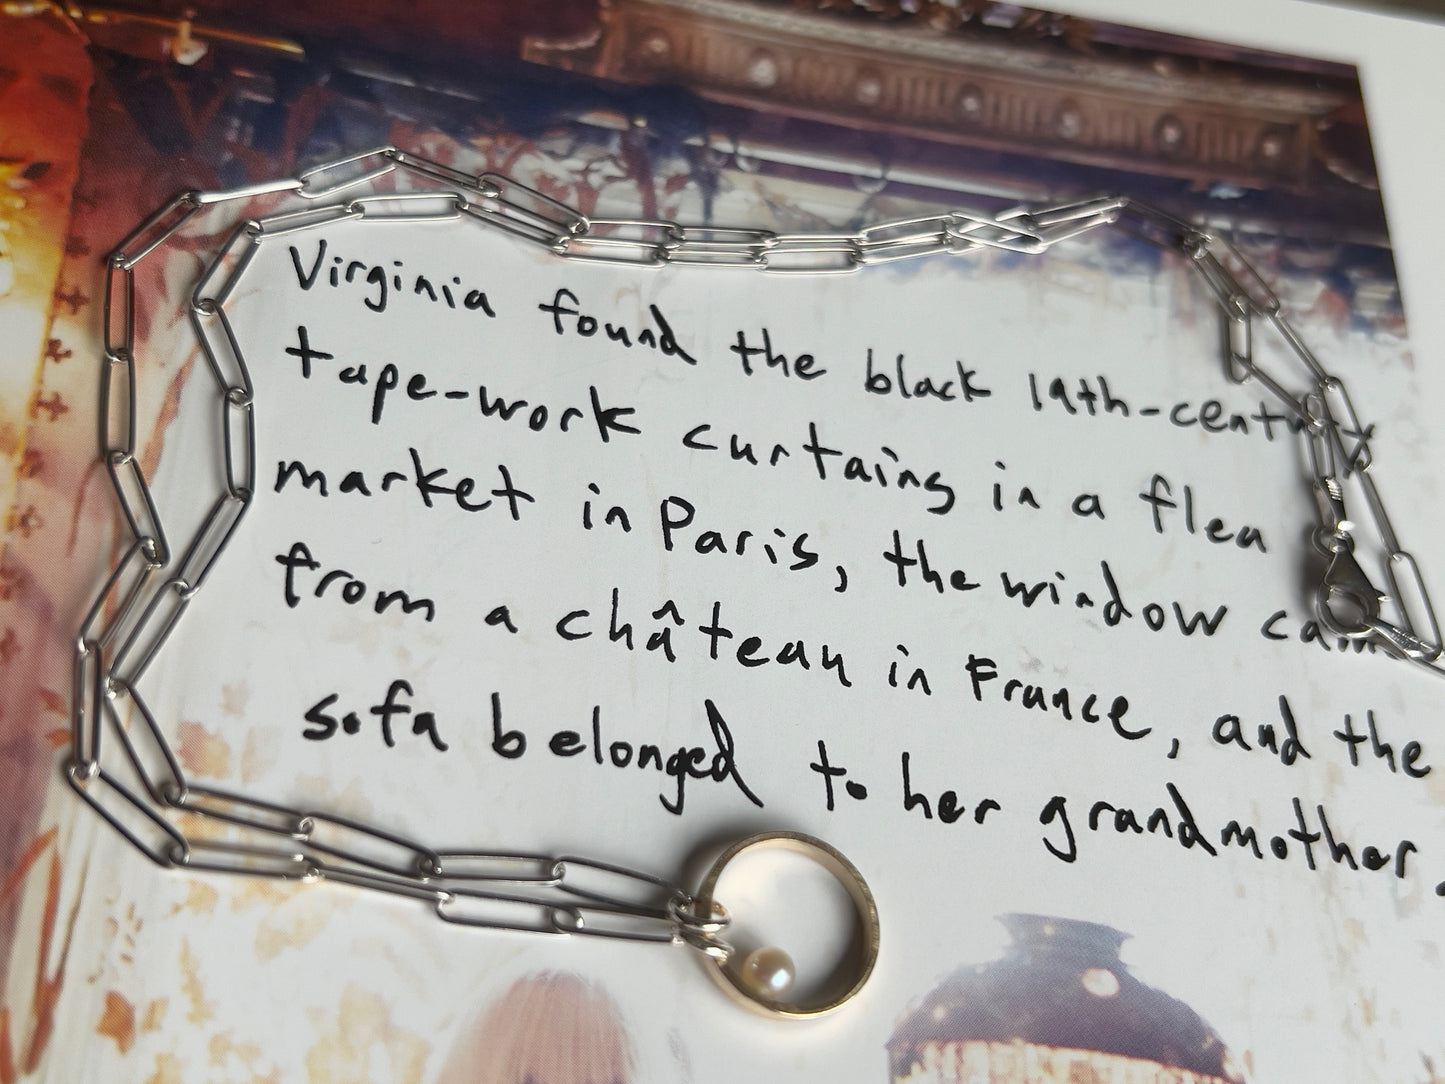 Virginia found the black 19th-century
tape-work curtains in a flea
market in Paris, the window came
from a château in France, and the
sofa belonged to her grandmother.